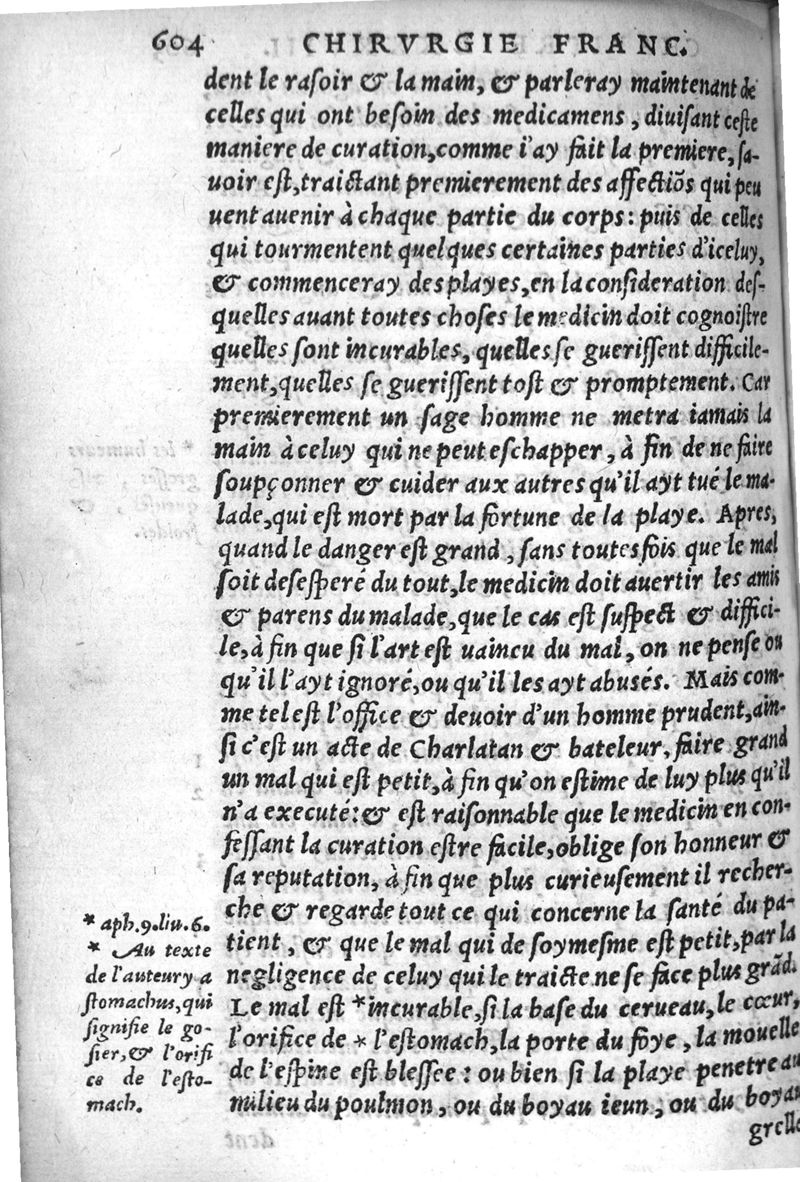 604 CHIRVRGIE FRANC.
dent le rasoir & la main, & parleray maintenant de
celles qui ont besoin des medicamens, diuisant ceste
maniere de curation, comme i'ay fait la premiere, sa-
uoir est, traictant premierement des affectiõs qui peu
uent auenir à chaque partie du corps: puis de celles
qui tourmentent quelques certaines parties d'iceluy,
& commenceray des playes, en la consideration des-
quelles auant toutes choses le medicin doit cognoistre
quelles sont incurables, quelles se guerissent difficile-
ment, quelles se guerissent tost & promptement. Car
premierement un sage homme ne metra iamais la
main à celuy qui ne peut eschapper, à fin de ne faire
soupçonner & cuider aux autres qu'il ayt tué le ma-
lade, qui est mort par la fortune de la playe. Apres,
quand le danger est grand, sans toutesfois que le mal
soit desesperé du tout, le medicin doit auertir les amis
& parens du malade, que le cas est suspect & diffici-
le, à fin que si l'art est uaincu du mal, on ne pense ou
qu'il l'ayt ignoré, ou qu'il les ayt abusés. Mais com-
me tel est l'office & deuoir d'un homme prudent, ain-
si c'est un acte de Charlatan & bateleur, faire grand
un mal qui est petit, à fin qu'on estime de luy plus qu'il
n'a executé: & est raisonnable que le medicin en con-
fessant la curation estre facile, oblige son honneur &
sa reputation, à fin que plus curieusement il recher-
che & regarde tout ce qui concerne la santé du pa-
tient, & que le mal qui de soymesme est petit, par la
negligence de celuy qui le traicte ne se face plus grãd.
Le mal est *incurable, si la base du cerueau, le cœur,
l'orifice de * l'estomach, la porte du foye, la mouelle
de l'espine est blessee: ou bien si la playe penetre au
milieu du poulmon, ou du boyau ieun, ou du boyau
grelle
* aph. 9. liu. 6.
* Au texte
de l'auteur y a
stomachus, qui
signifie le go-
sier, & l'orifi
ce de l'esto-
mach.